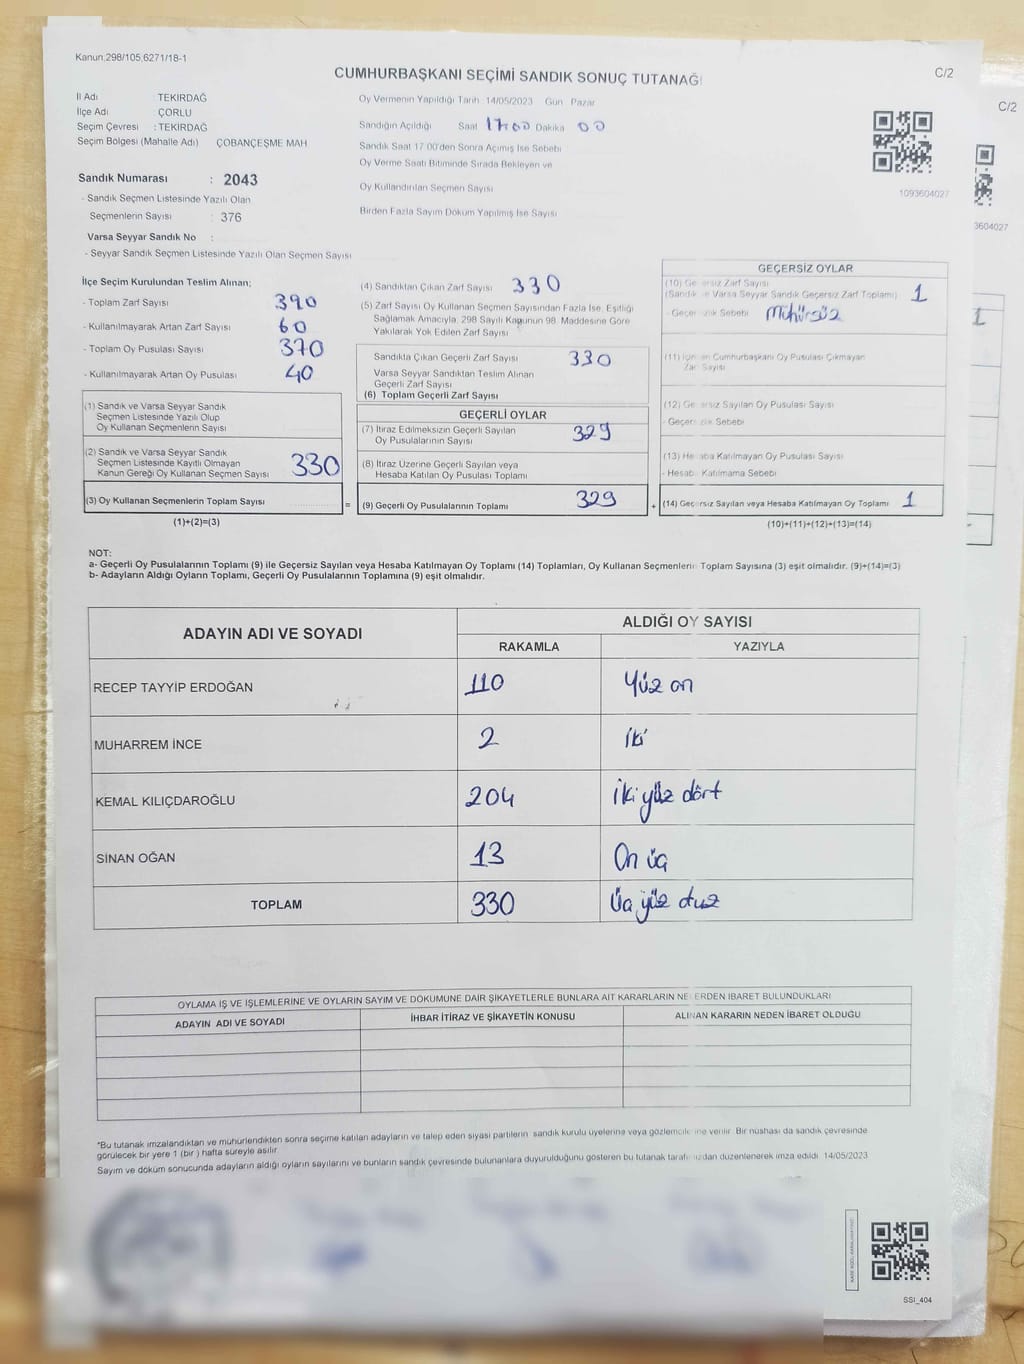 Kanun,298/105,6271/18-1
C/2
CUMHURBAŞKANI SEÇİMİ SANDIK SONUÇ TUTANAĞI
İl Adı TEKİRDAĞ
İlçe Adı ÇORLU
Seçim Çevresi : TEKİRDAĞ
Seçim Bölgesi (Mahalle Adı) ÇOBANÇEŞME MAH
Sandık Numarası : 2043
- Sandık Seçmen Listesinde Yazılı Olan
Seçmenlerin Sayısı : 376
Varsa Seyyar Sandık No :
- Seyyar Sandık Seçmen Listesinde Yazılı Olan Seçmen Sayısı
Oy Vermenin Yapıldığı Tarih 14/05/2023 Gün Pazar
Sandığın Açıldığı Saat 17:00 Dakika 00
Sandık Saat 17.00'den Sonra Açımış İse Sebebi
Oy Verme Saati Bitiminde Sırada Bekleyen ve
Oy Kullandırılan Seçmen Sayısı
Birden Fazla Sayım Döküm Yapılmış İse Sayısı
1093604027
C/2
3604027
1
İlçe Seçim Kurulundan Teslim Alınan;
- Toplam Zarf Sayısı 390
- Kullanılmayarak Artan Zarf Sayısı 60
- Toplam Oy Pusulası Sayısı 370
- Kullanılmayarak Artan Oy Pusulası 40
(1) Sandık ve Varsa Seyyar Sandık
Seçmen Listesinde Yazılı Olup
Oy Kullanan Seçmenlerin Sayısı
(2) Sandık ve Varsa Seyyar Sandık
Seçmen Listesinde Kayıtlı Olmayan
Kanun Gereği Oy Kullanan Seçmen Sayısı 330
(3) Oy Kullanan Seçmenlerin Toplam Sayısı =
(1)+(2)=(3)
(4) Sandıktan Çıkan Zarf Sayısı 330
(5) Zarf Sayısı Oy Kullanan Seçmen Sayısından Fazla İse, Eşitliği
Sağlamak Amacıyla, 298 Sayılı Kanunun 98. Maddesine Göre
Yakılarak Yok Edilen Zarf Sayısı
Sandıkta Çıkan Geçerli Zarf Sayısı 330
Varsa Seyyar Sandıktan Teslim Alınan
Geçerli Zarf Sayısı
(6) Toplam Geçerli Zarf Sayısı
GEÇERLİ OYLAR
(7) İtiraz Edilmeksizin Geçerli Sayılan
Oy Pusulalarının Sayısı 329
(8) İtiraz Üzerine Geçerli Sayılan veya
Hesaba Katılan Oy Pusulası Toplamı
(9) Geçerli Oy Pusulalarının Toplamı 329 +
GEÇERSİZ OYLAR
(10) Geçersiz Zarf Sayısı
(Sandık ve Varsa Seyyar Sandık Geçersiz Zarf Toplamı) 1
- Geçersizlik Sebebi Mühürsüz
Cumhurbaşkanı Oy Pusulası Çıkmayan
Zarf Sayısı
(12) Geçersiz Sayılan Oy Pusulası Sayısı
- Geçersizlik Sebebi
(13) Hesaba Katılmayan Oy Pusulası Sayısı
- Hesaba Katılmama Sebebi
(14) Geçersiz Sayılan veya Hesaba Katılmayan Oy Toplamı 1
(10)+(11)+(12)+(13)=(14)
NOT:
a- Geçerli Oy Pusulalarının Toplamı (9) ile Geçersiz Sayılan veya Hesaba Katılmayan Oy Toplamı (14) Toplamları, Oy Kullanan Seçmenlerin Toplam Sayısına (3) eşit olmalıdır. (9)+(14)=(3)
b- Adayların Aldığı Oyların Toplamı, Geçerli Oy Pusulalarının Toplamına (9) eşit olmalıdır.
ADAYIN ADI VE SOYADI
ALDIĞI OY SAYISI
RAKAMLA YAZIYLA
RECEP TAYYİP ERDOĞAN 110 Yüz on
MUHARREM İNCE 2 İki
KEMAL KILIÇDAROĞLU 204 İki yüz dört
SİNAN OĞAN 13 On üç
TOPLAM 330 Üç yüz otuz
OYLAMA İŞ VE İŞLEMLERİNE VE OYLARIN SAYIM VE DÖKÜMÜNE DAİR ŞİKAYETLERLE BUNLARA AİT KARARLARIN NELERDEN İBARET BULUNDUKLARI
ADAYIN ADI VE SOYADI İHBAR İTİRAZ VE ŞİKAYETİN KONUSU ALINAN KARARIN NEDEN İBARET OLDUĞU
*Bu tutanak imzalandıktan ve mühürlendikten sonra seçime katılan adayların ve talep eden siyasi partilerin sandık kurulu üyelerine veya gözlemcilerine verilir. Bir nüshası da sandık çevresinde
görülecek bir yere 1 (bir) hafta süreyle asılır.
Sayım ve döküm sonucunda adayların aldığı oyların sayılarını ve bunların sandık çevresinde bulunanlara duyurulduğunu gösteren bu tutanak tarafımızdan düzenlenerek imza edildi. 14/05/2023
SSI_404